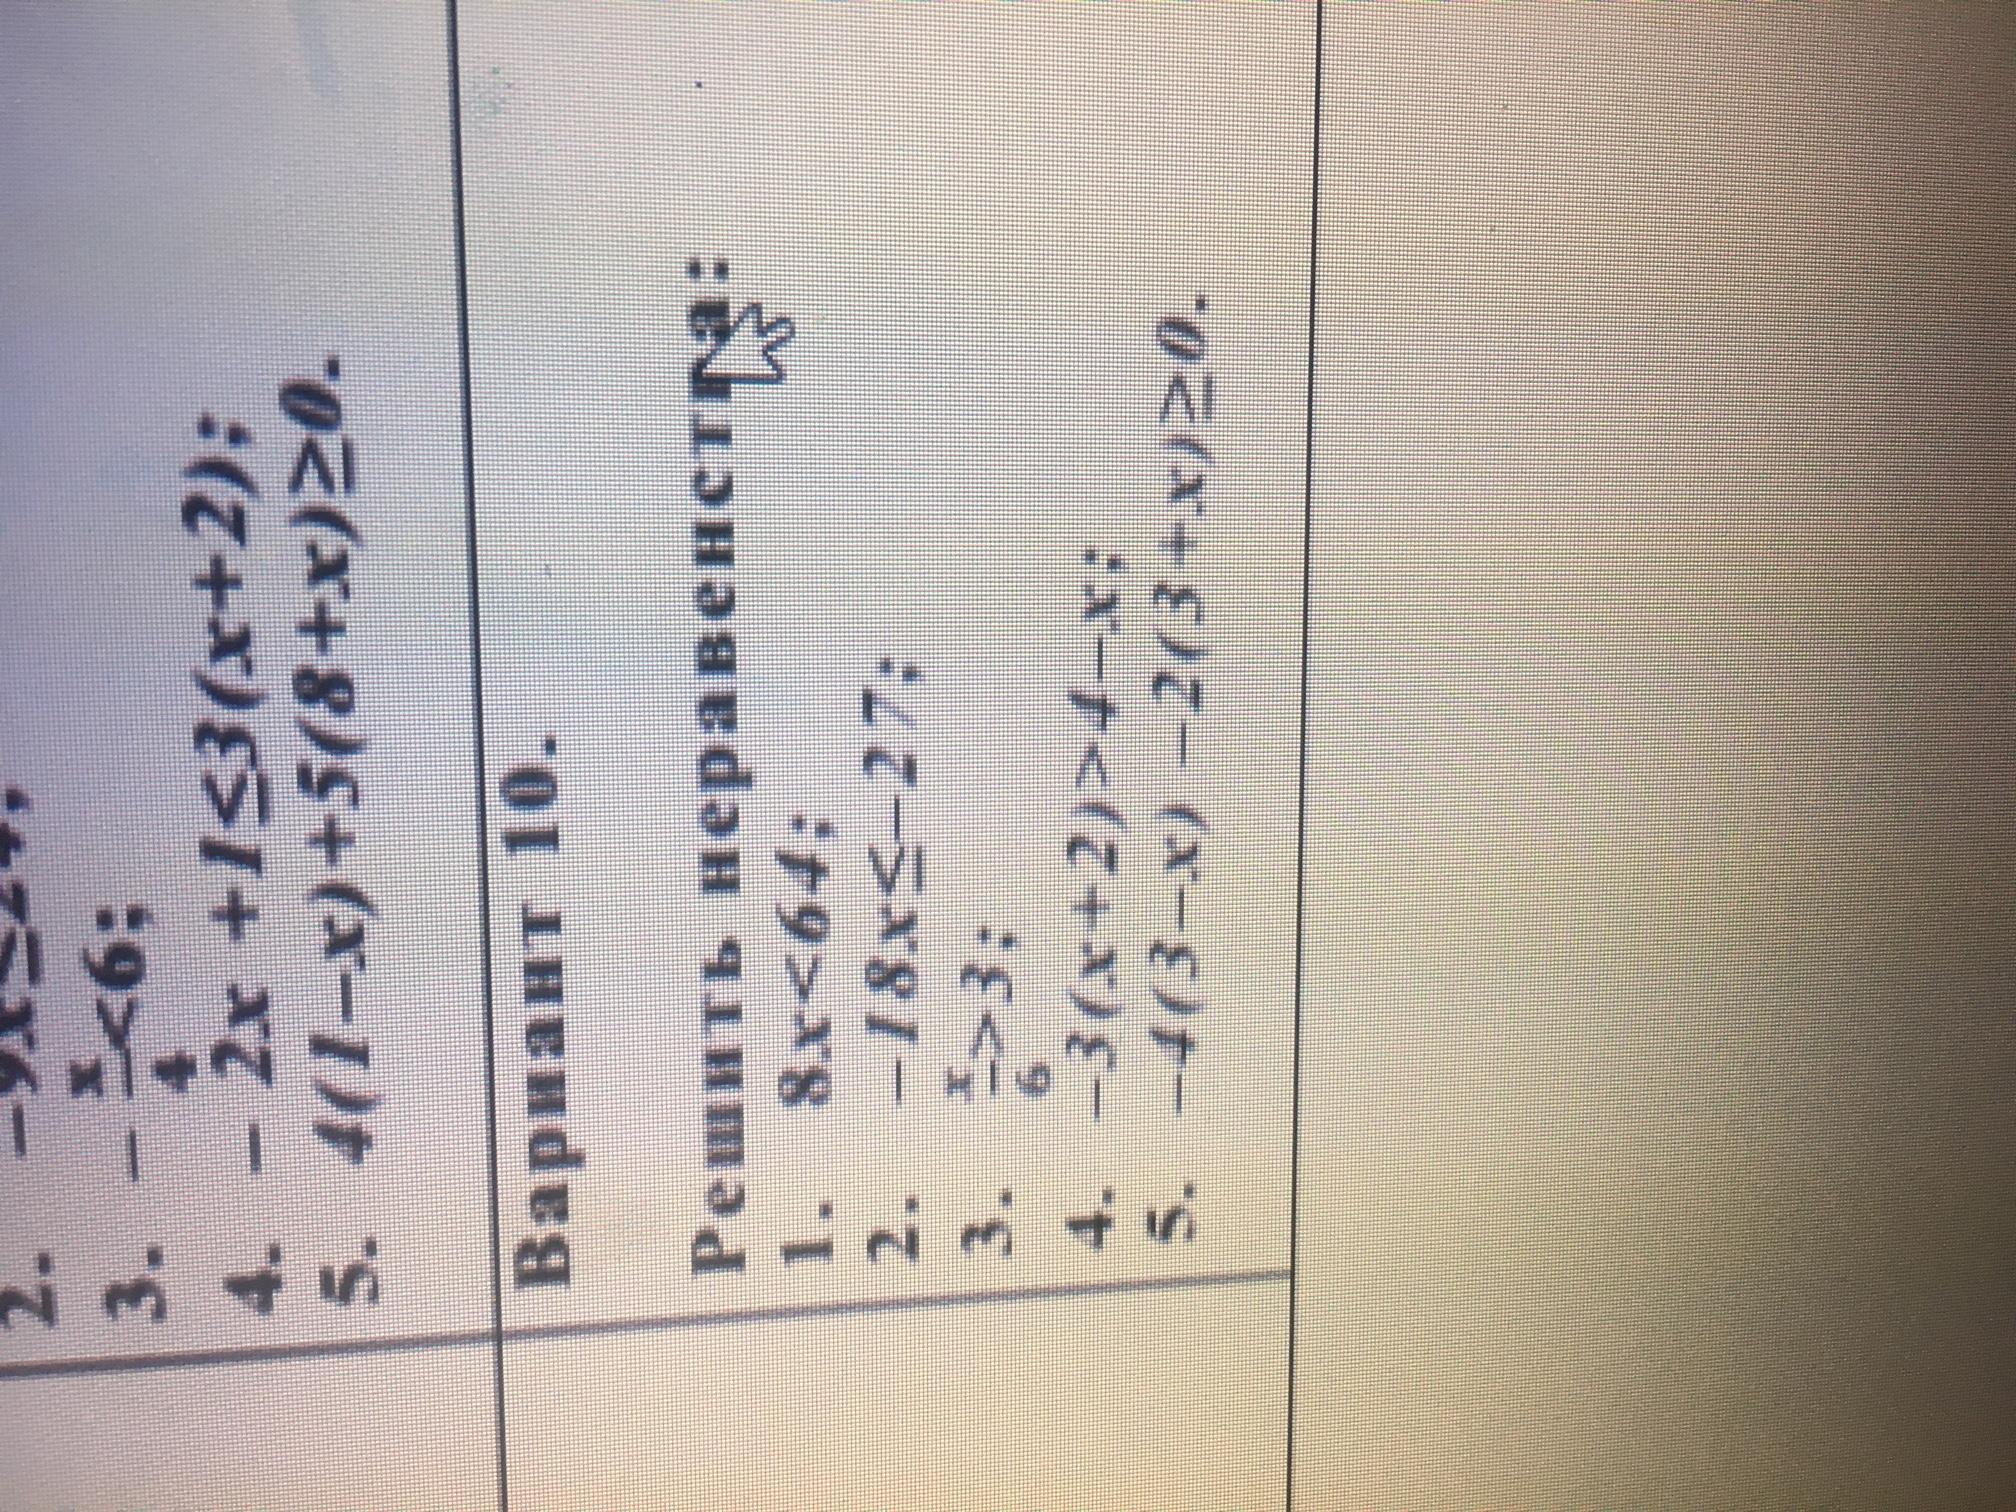 2. −9x≤24;
3. − x/4<6;
4. − 2x +1≤3(x+2);
5. 4(1−x)+5(8+x)≥0.
Вариант 10.
Решить неравенства:
1. 8x<64;
2. −18x≤−27;
3. x/6>3;
4. −3(x+2)>4−x;
5. −4(3−x) −2(3+x)≥0.